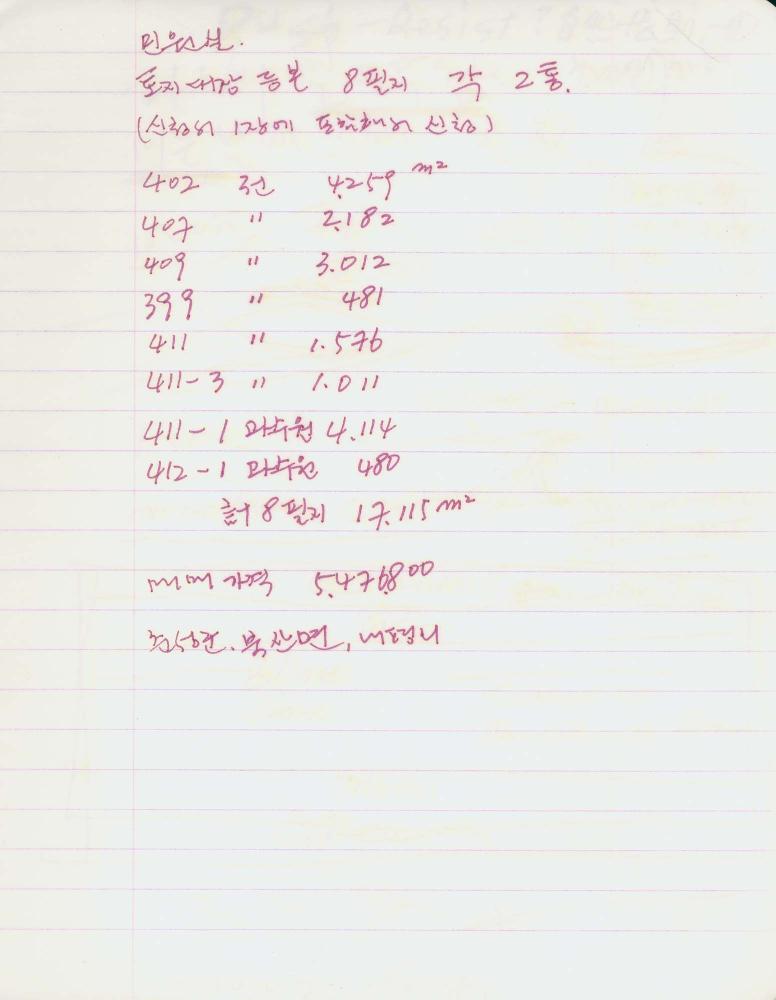 민원실.
토지대장 등본 8필지 각 2통.
(신청서 1장에 포함해서 신청)
402 전 4.259 m²
407 " 2.182
409 " 3.012
399 " 481
411 " 1.576
411-3 " 1.011
411-1 과수원 4.114
412-1 과수원 480
計 8필지 17.115 m²
매매 가격 5.476.800
춘성군. 북산면, 내평리